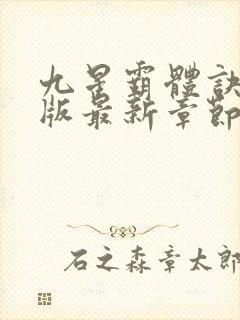 九星霸體訣
版最新章節
石之森章太郎